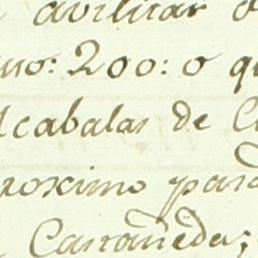 avilitar
no: 200: o q
lcabalas de C
roximo pas
Castañeda;